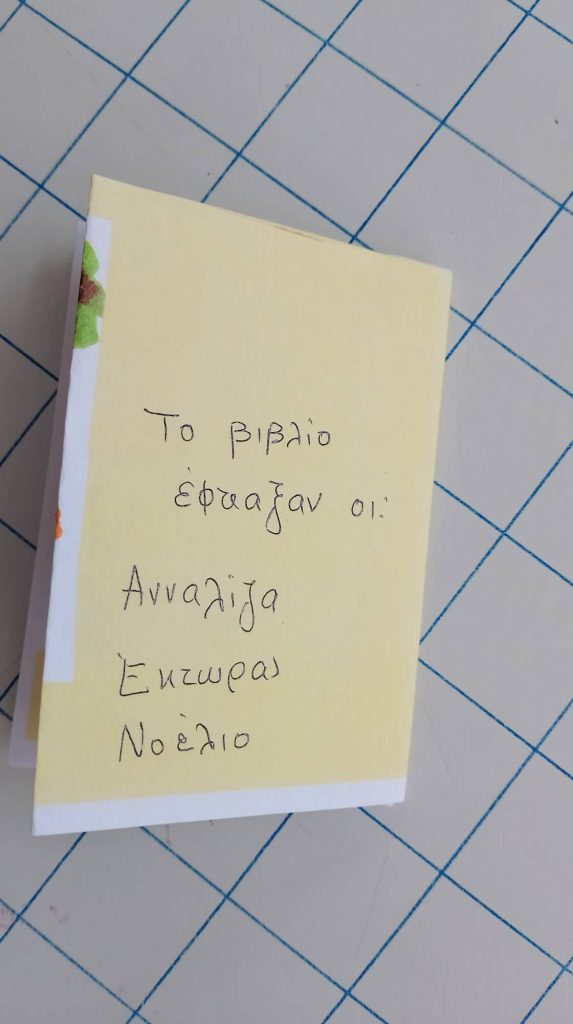 Το βιβλίο
έφτιαξαν οι:
Ανναλίζα
Έκτωρας
Νοέλιο